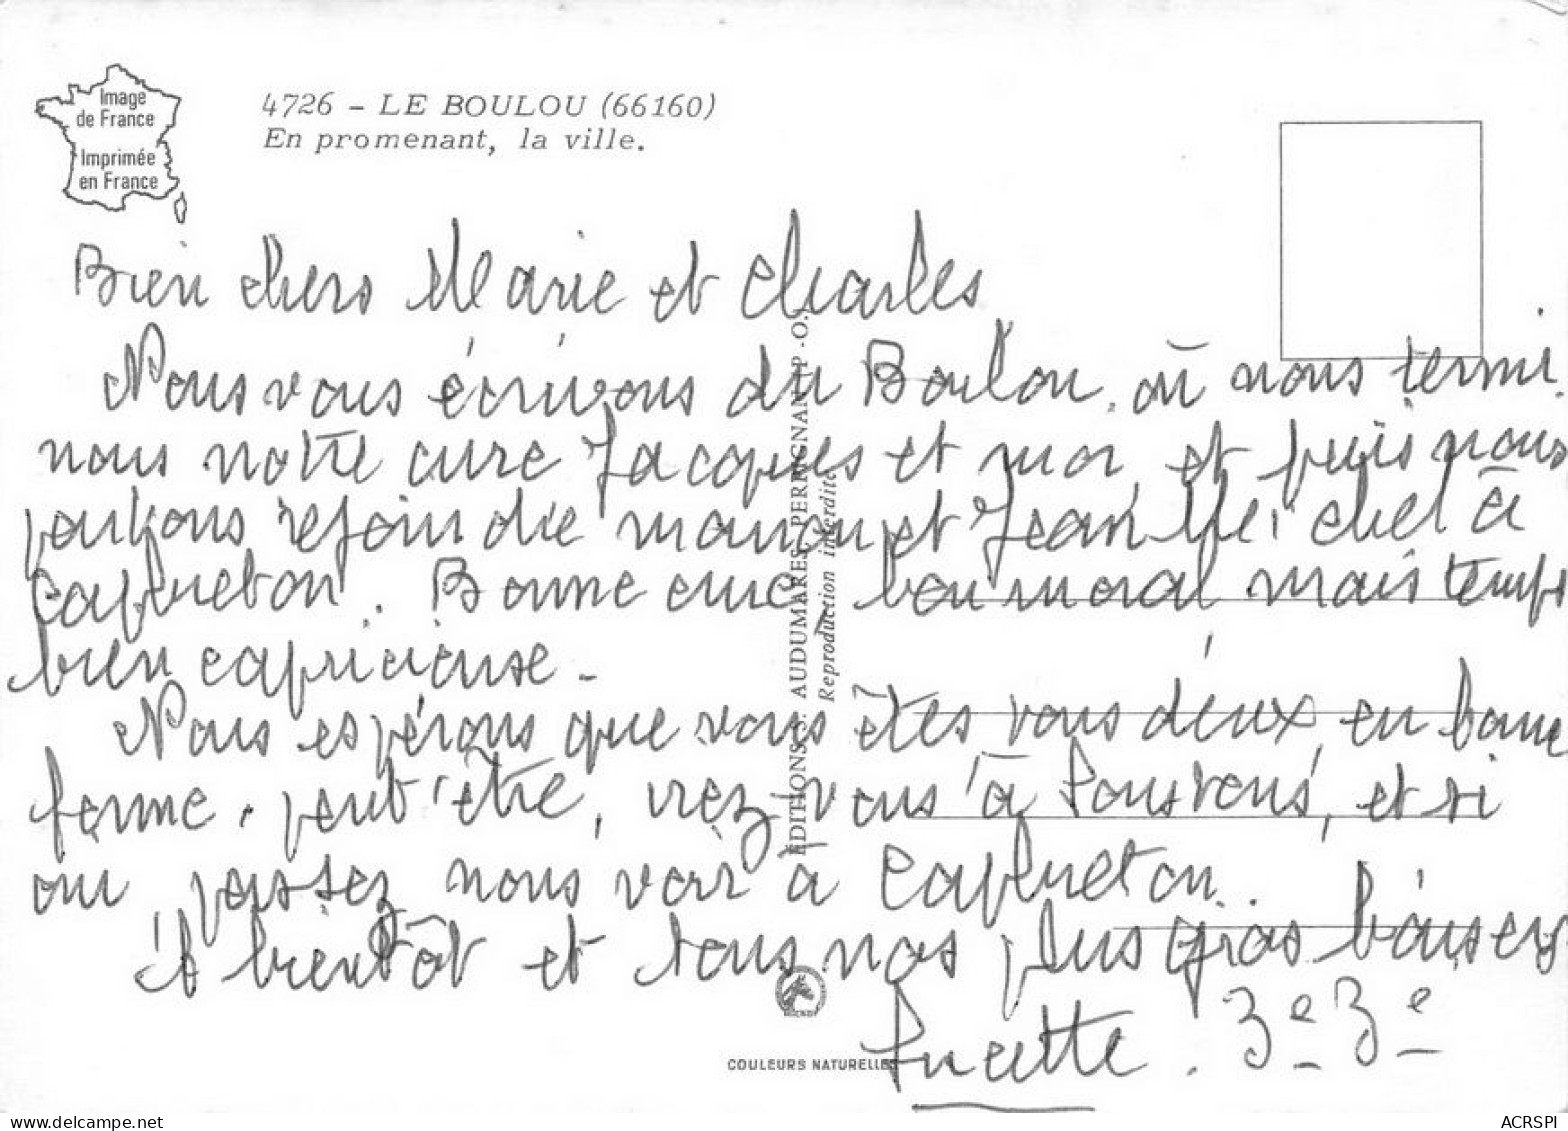 Image
de France
Imprimée
en France
4726 - LE BOULOU (66160)
En promenant, la ville.
Bien chers Marie et Charles
Nous vous écrivons du Boulou, où nous termi
nous notre cure Jacques et moi, et puis nous
partons rejoindre manou et Jean Mi, chel à
Capbreton. Bonne cure, bon moral mais temps
bien capricieuse -
Nous espérons que vous êtes vous deux, en bonne
forme. peut être, irez-vous à, et si
oui passez nous voir à Capbreton.
A bientôt et tous nos plus gros baisers
Lucette. Zeze
EDITIONS AUDUMARES PERPIGNAN (P.-O.)
Reproduction interdite
COULEURS NATURELLES
delcampe.net
ACRSPI